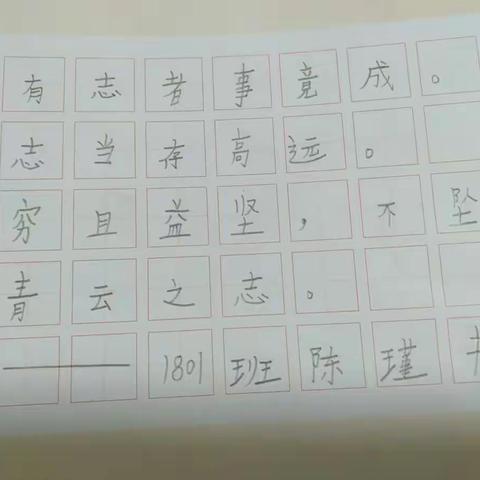 有志者事竟成。
志当存高远。
穷且益坚，不坠
青云之志。
——1801班陈瑾